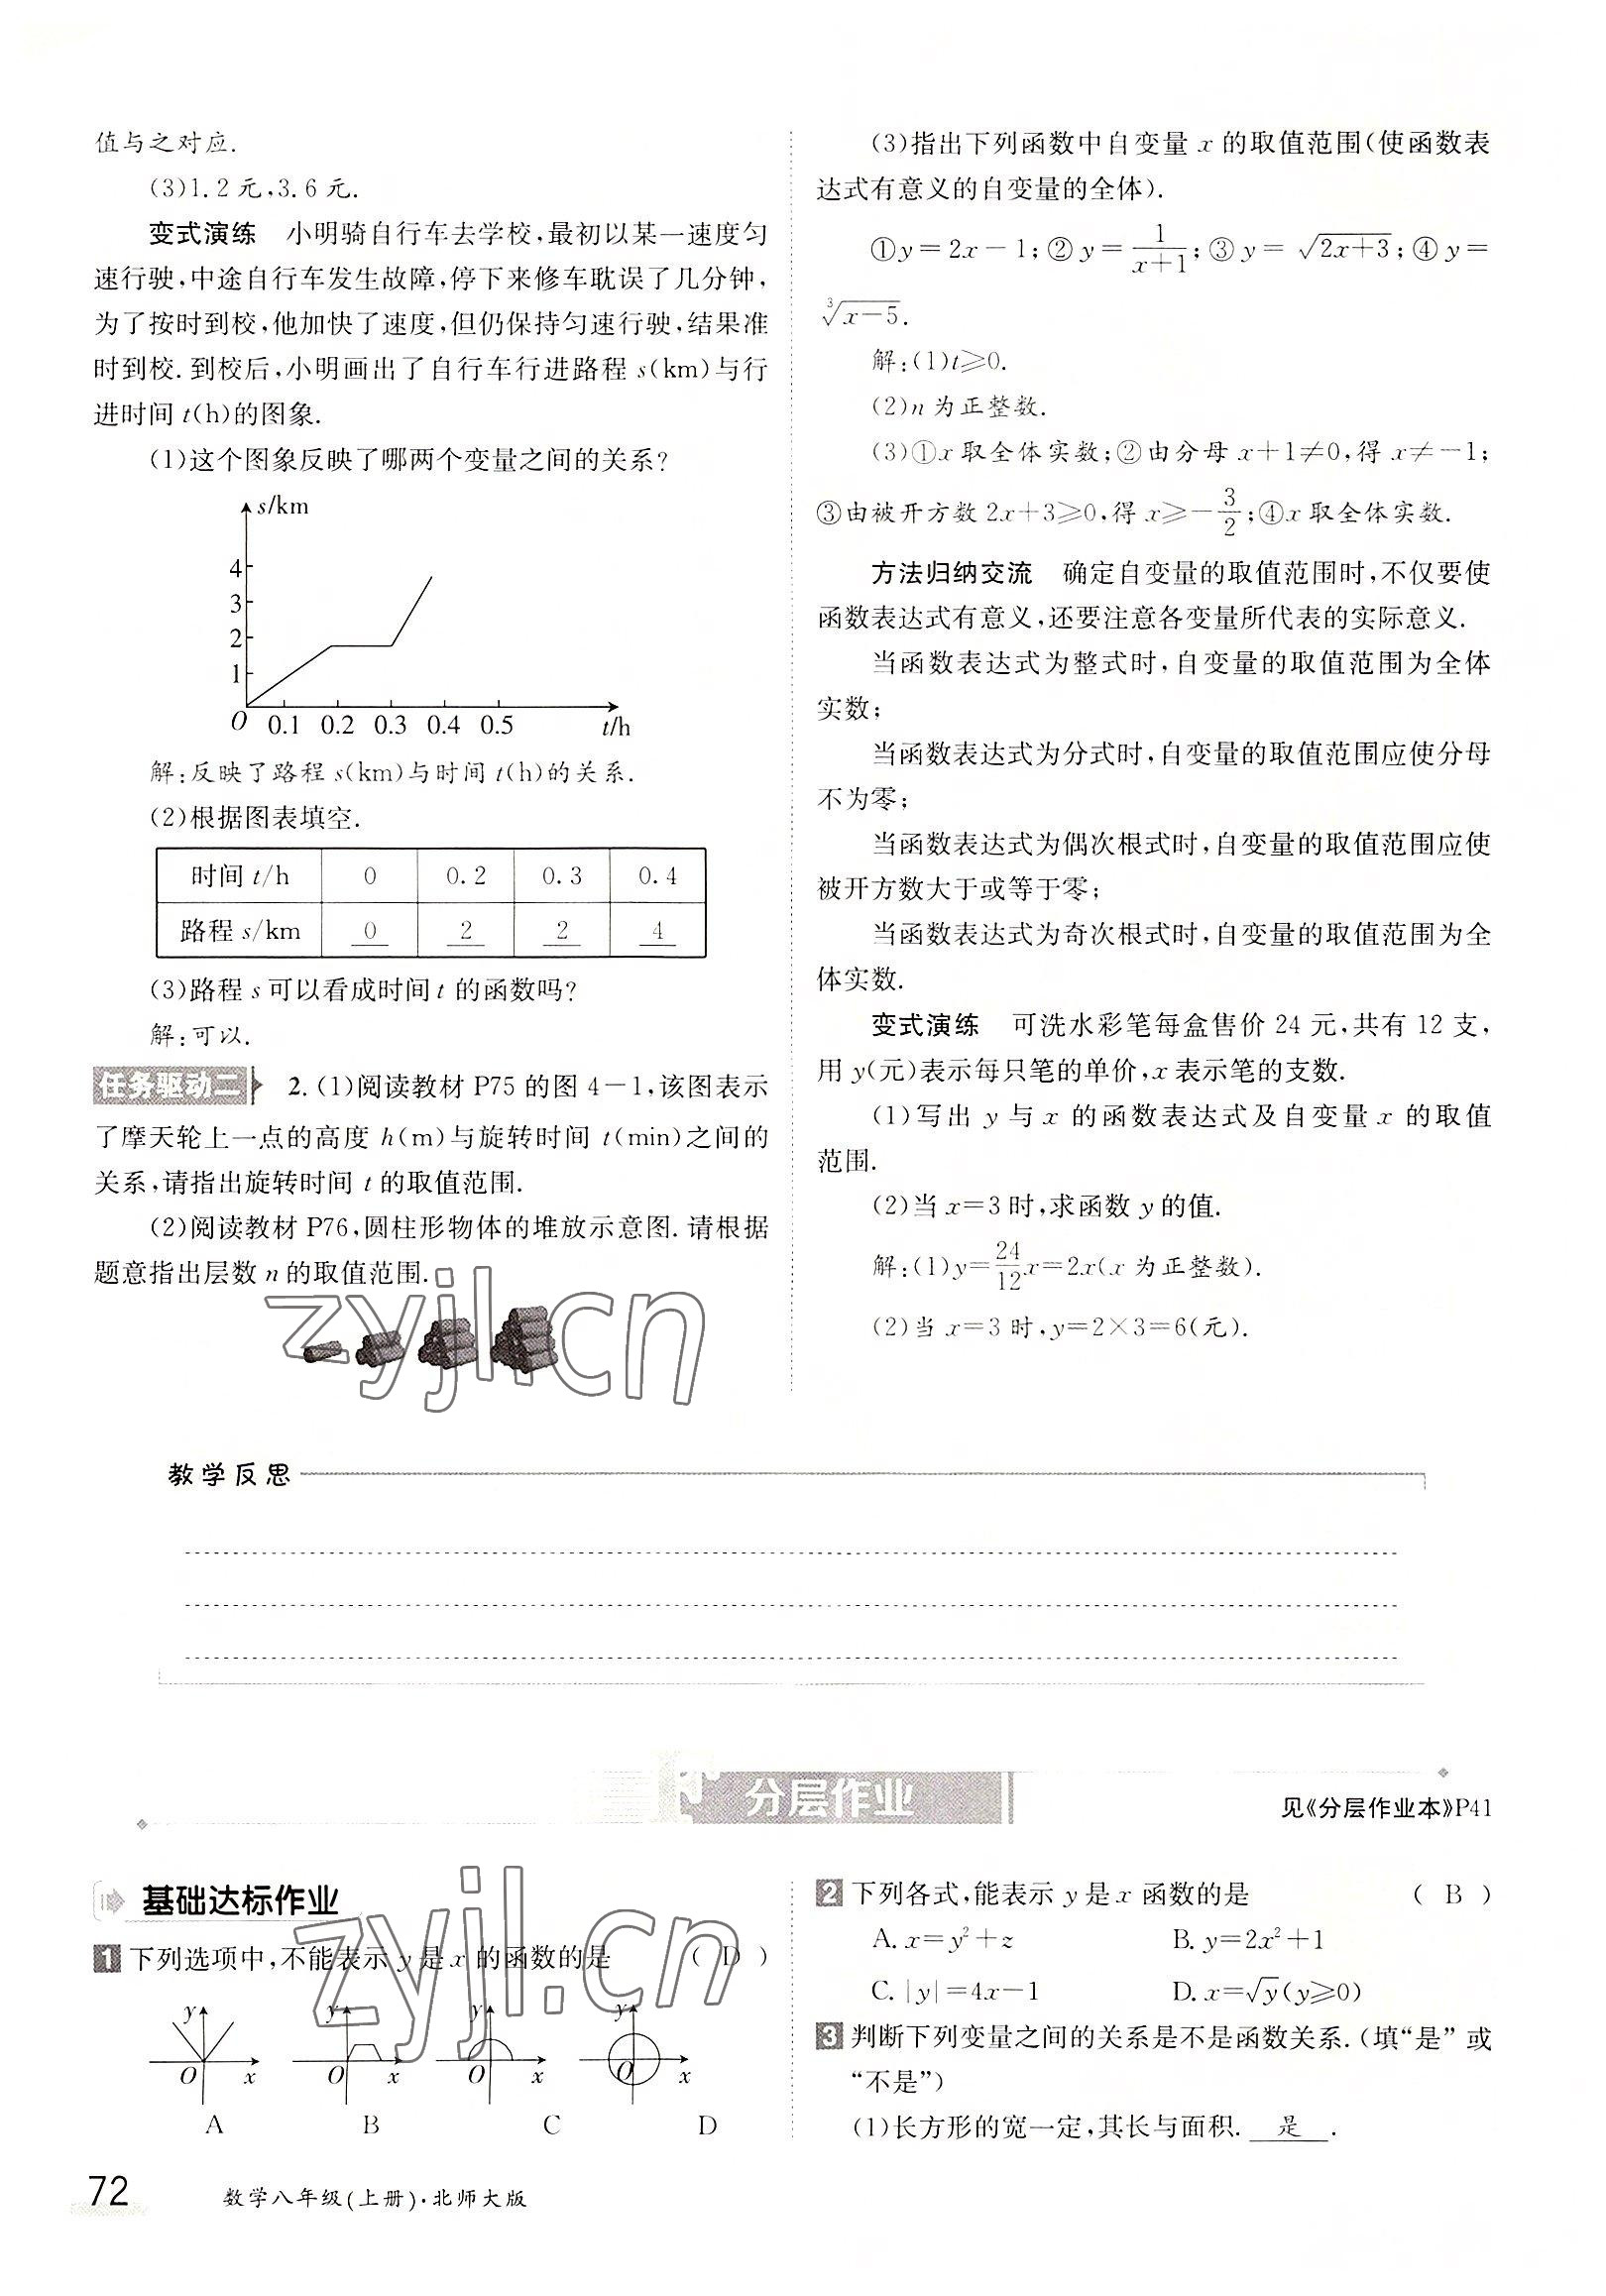 值与之对应.
(3)1.2元,3.6元.
变式演练 小明骑自行车去学校,最初以某一速度匀
速行驶,中途自行车发生故障,停下来修车耽误了几分钟,
为了按时到校,他加快了速度,但仍保持匀速行驶,结果准
时到校.到校后,小明画出了自行车行进路程 s(km)与行
进时间 t(h)的图象.
(1)这个图象反映了哪两个变量之间的关系?
s/km
4
3
2
1
O 0.1 0.2 0.3 0.4 0.5 t/h
解:反映了路程 s(km)与时间 t(h)的关系.
(2)根据图表填空.
时间 t/h 0 0.2 0.3 0.4
路程 s/km 0 2 2 4
(3)路程 s 可以看成时间 t 的函数吗?
解:可以.
任务驱动二 2.(1)阅读教材 P75 的图 4-1,该图表示
了摩天轮上一点的高度 h(m)与旋转时间 t(min)之间的
关系,请指出旋转时间 t 的取值范围.
(2)阅读教材 P76,圆柱形物体的堆放示意图.请根据
题意指出层数 n 的取值范围.
zyjl.cn
(3)指出下列函数中自变量 x 的取值范围(使函数表
达式有意义的自变量的全体).
①y=2x-1;②y=1/(x+1);③y=√(2x+3);④y=
∛(x-5).
解:(1)t≥0.
(2)n 为正整数.
(3)①x 取全体实数;②由分母 x+1≠0,得 x≠-1;
③由被开方数 2x+3≥0,得 x≥-3/2;④x 取全体实数.
方法归纳交流 确定自变量的取值范围时,不仅要使
函数表达式有意义,还要注意各变量所代表的实际意义.
当函数表达式为整式时,自变量的取值范围为全体
实数;
当函数表达式为分式时,自变量的取值范围应使分母
不为零;
当函数表达式为偶次根式时,自变量的取值范围应使
被开方数大于或等于零;
当函数表达式为奇次根式时,自变量的取值范围为全
体实数.
变式演练 可洗水彩笔每盒售价 24 元,共有 12 支,
用 y(元)表示每只笔的单价,x 表示笔的支数.
(1)写出 y 与 x 的函数表达式及自变量 x 的取值
范围.
(2)当 x=3 时,求函数 y 的值.
解:(1)y=24/12x=2x(x 为正整数).
(2)当 x=3 时,y=2×3=6(元).
教学反思
分层作业
见《分层作业本》P41
基础达标作业
1 下列选项中,不能表示 y 是 x 的函数的是 ( D )
y y y y
O x O x O x O x
A B C D
zyjl.cn
2 下列各式,能表示 y 是 x 函数的是 ( B )
A. x=y²+z B. y=2x²+1
C. |y|=4x-1 D. x=√y(y≥0)
3 判断下列变量之间的关系是不是函数关系.(填“是”或
“不是”)
(1)长方形的宽一定,其长与面积. 是 .
72 数学八年级(上册)·北师大版